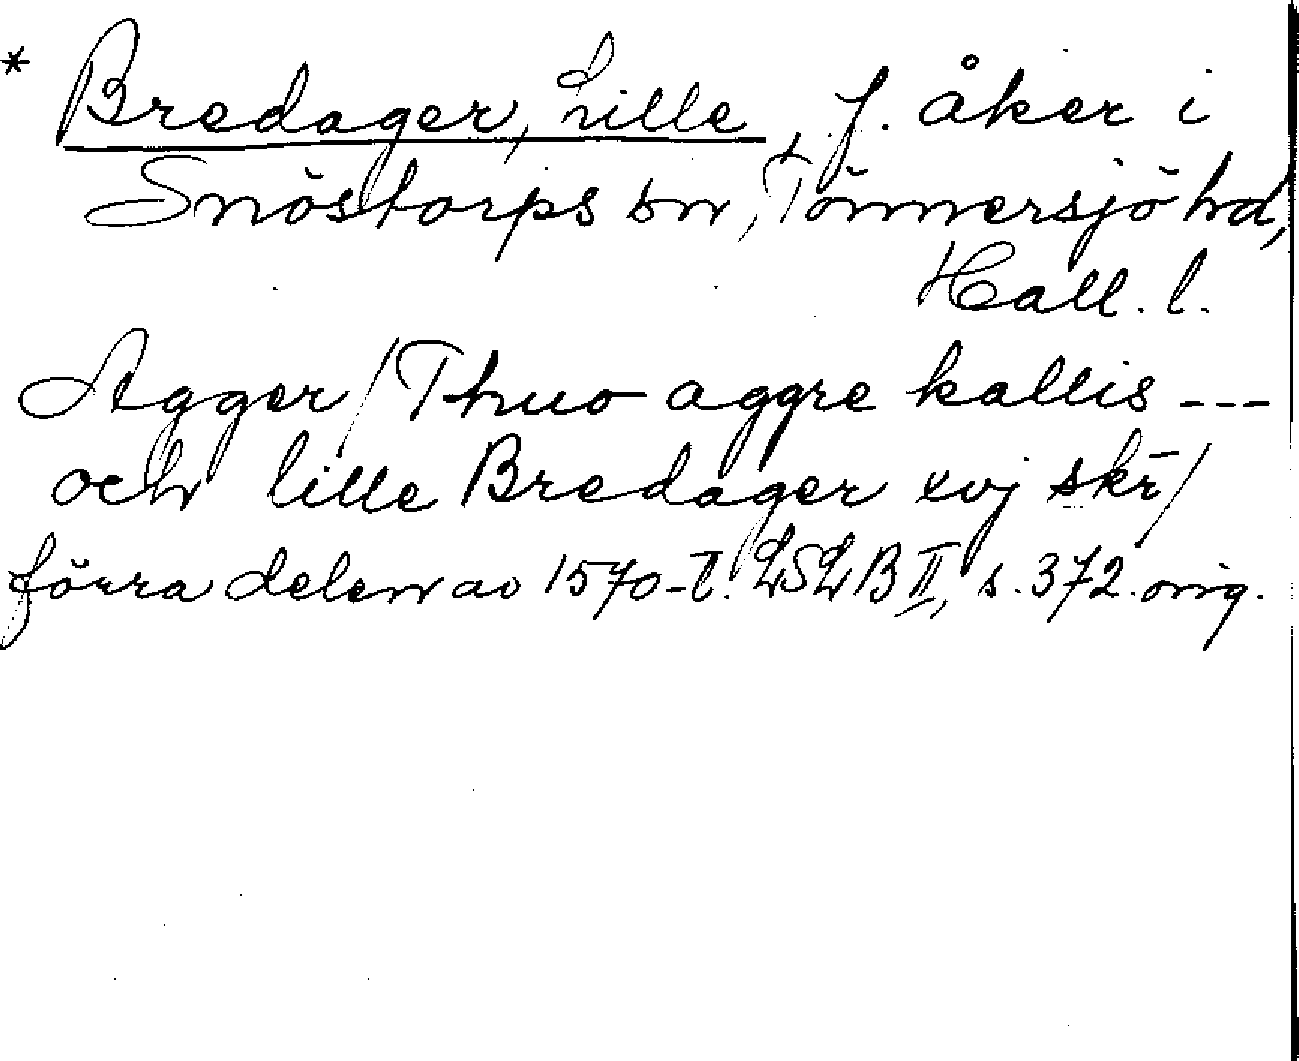 * Bredager, Lille, f. åker i
Snöstorps sn, Tönnersjö hd,
Hall. l.
Agger / Thuo aggre kallis ---
och lille Bredager xvj skr̄ /
förra delen av 1570-t. LSLB II, s. 372. orig.